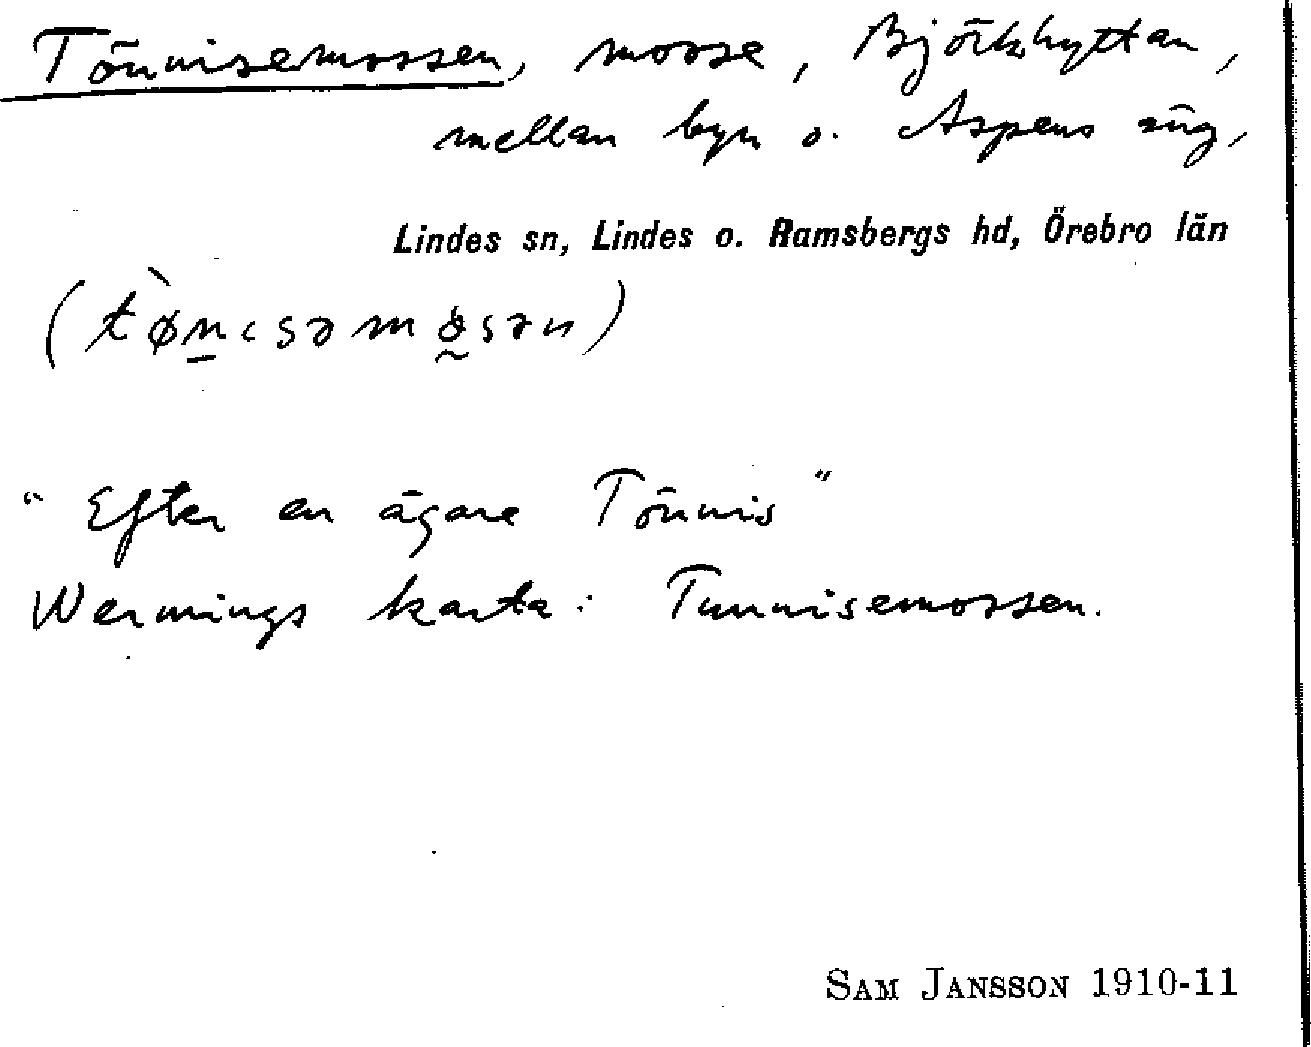 Tönnisemossen, mosse, Björkhyttan,
mellan byn o. Aspens äng,
Lindes sn, Lindes o. Ramsbergs hd, Örebro län
(tø̀n̲ɩsəmo̰sən)
"Efter en ägare Tönnis"
Wermings karta: Tunnisemossen.
SAM JANSSON 1910-11